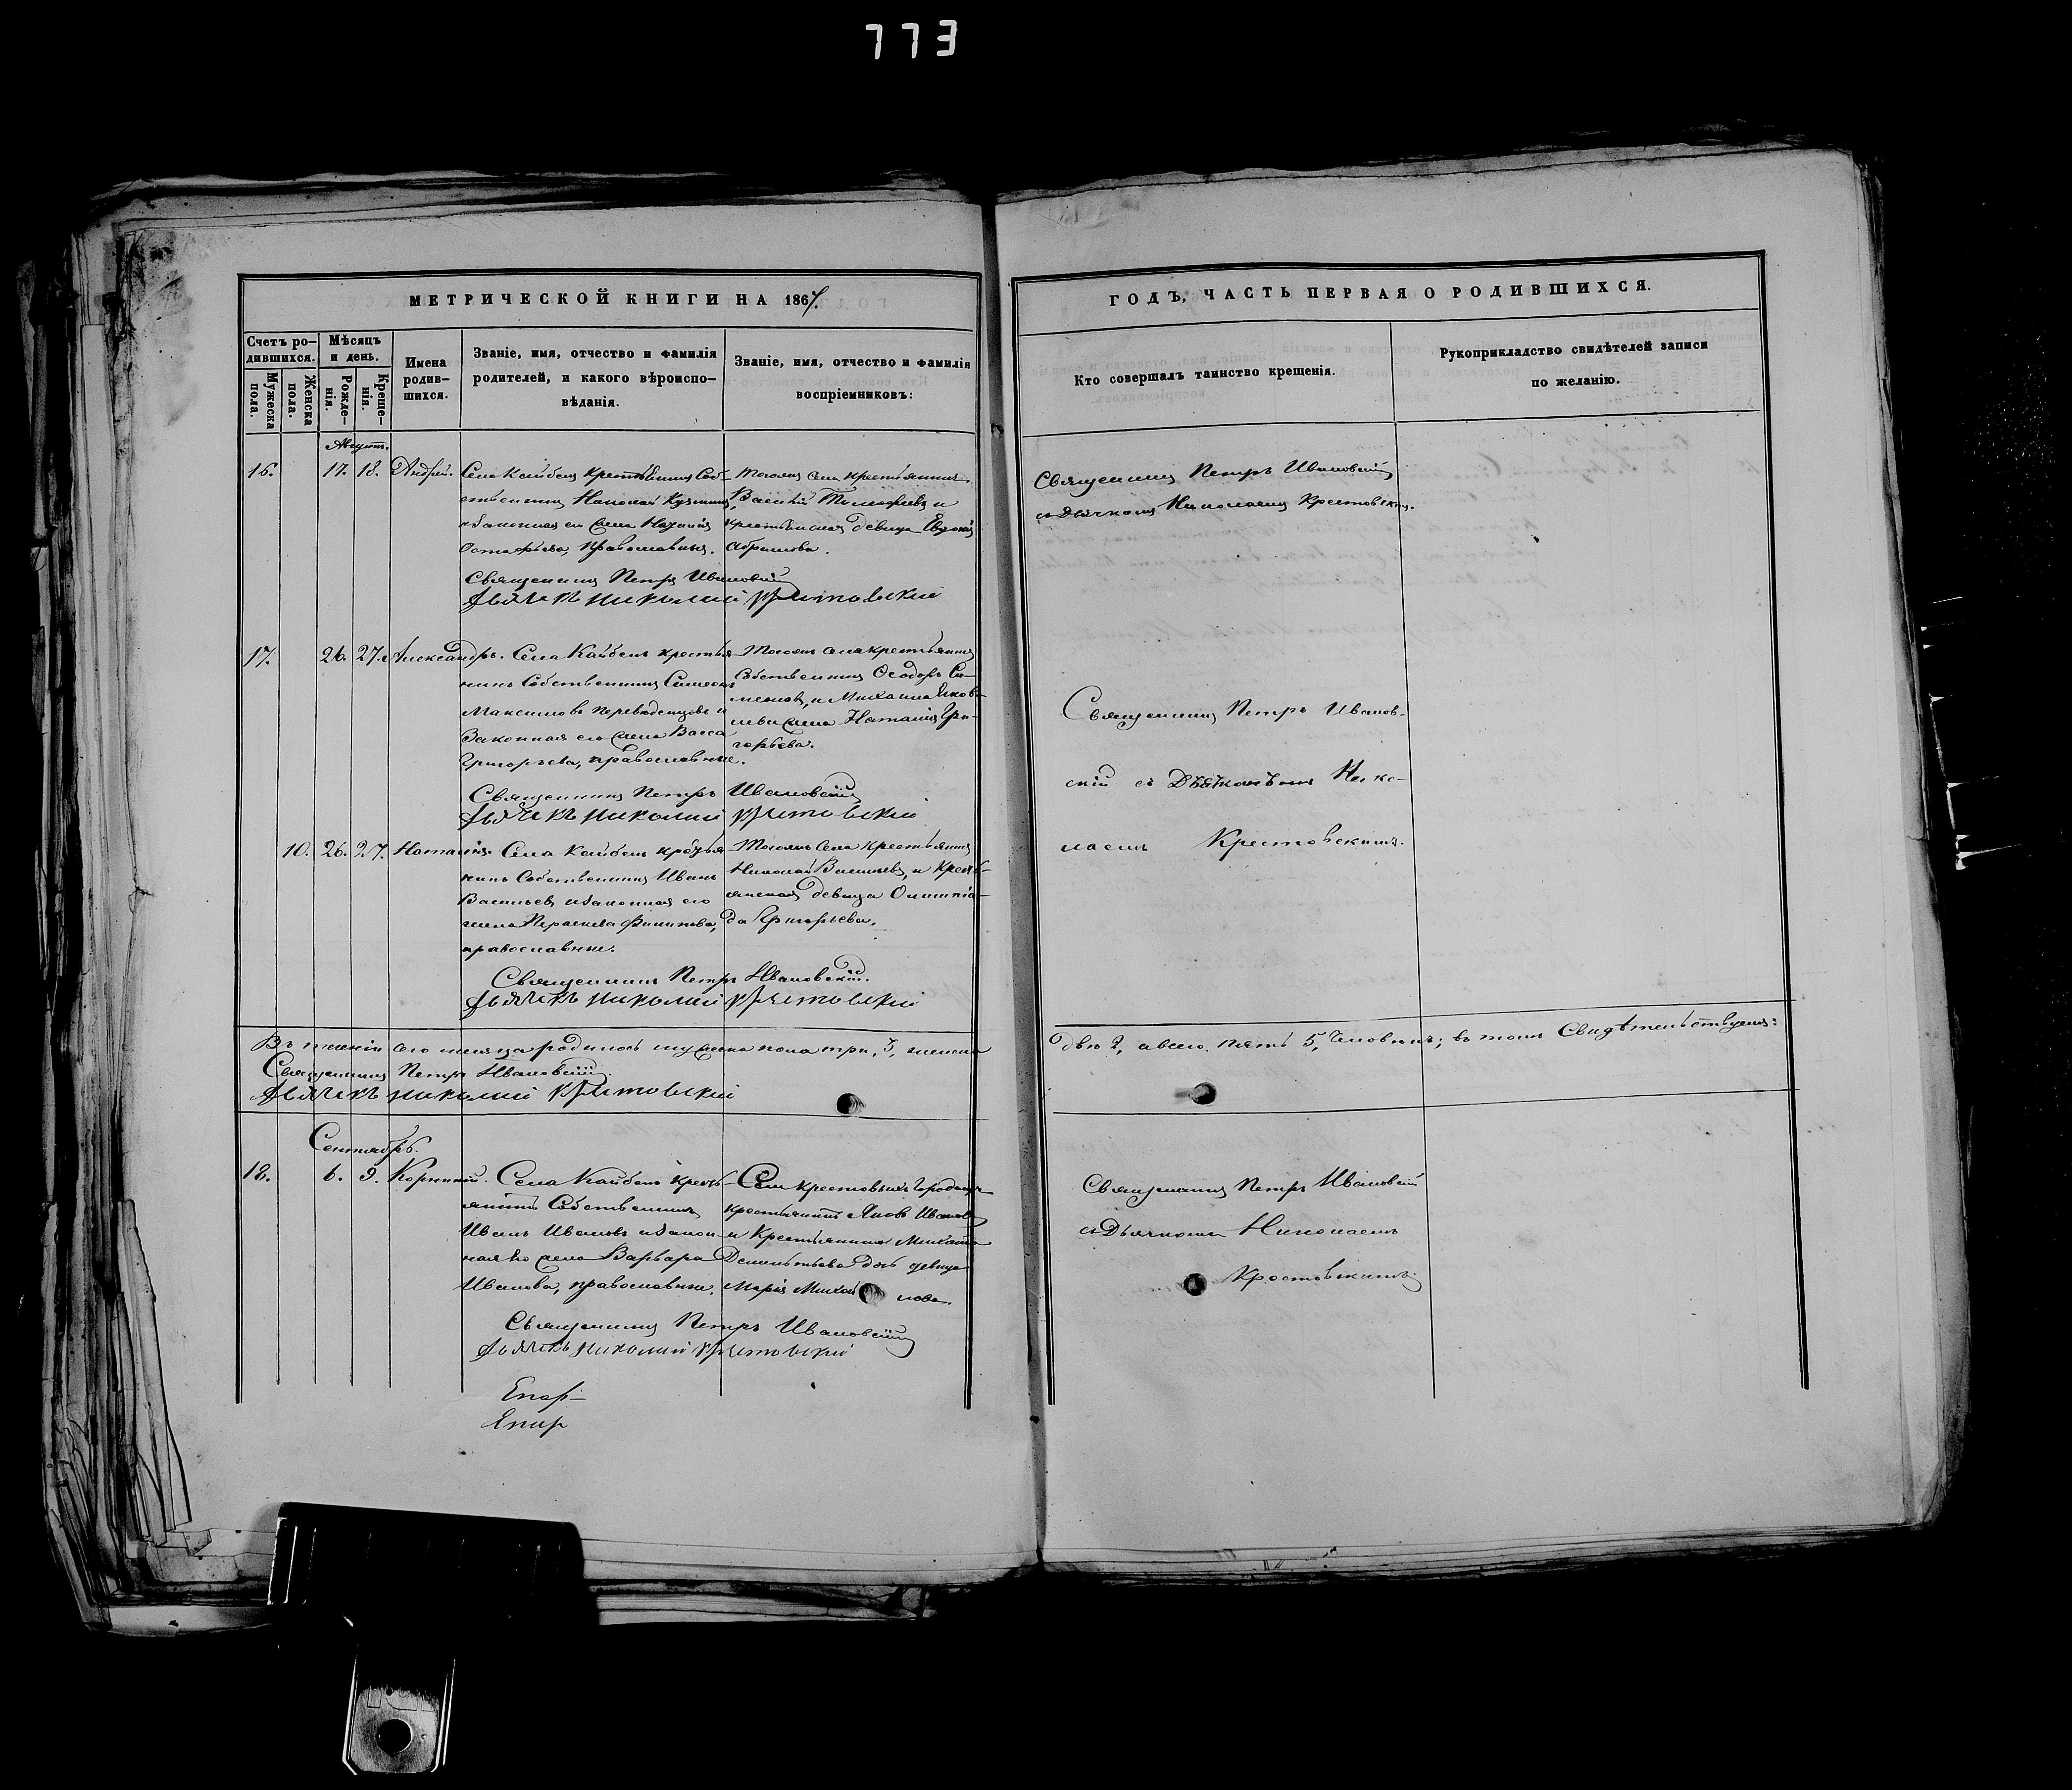 773
МЕТРИЧЕСКОЙ КНИГИ НА 1867.
Счетъ родившихся.
Мужеска пола.
Женска пола.
Мѣсяцъ и день.
Рожденія.
Крещенія.
Имена родившихся.
Званіе, имя, отчество и фамилія
родителей, и какого вѣроиспо-
вѣданія.
Званіе, имя, отчество и фамилія
воспріемниковъ:
ГОДЪ, ЧАСТЬ ПЕРВАЯ О РОДИВШИХСЯ.
Кто совершалъ таинство крещенія.
Рукоприкладство свидѣтелей записи
по желанію.
Августъ.
16. 17. 18. Андрей.
Села Кайбелъ крестьянинъ Соб-
ственникъ Николай Кузминъ,
и законная его жена
православные.
Тогожъ села крестьянинъ
Василій Тимофеевъ и
крестьянская девица
Абрамова.
Священникъ Петръ Ивановскій
съ Дьячкомъ Николаемъ Крестовскимъ.
Священникъ Петръ Ивановскій
Дьячекъ Николай Крестовскій
17. 26. 27. Александръ.
Села Кайбелъ крестья-
нинъ Собственникъ
Максимовъ и
Законная его жена Васса
Григорьева, православные.
Тогожъ села крестьянинъ
Собственникъ Ѳеодоръ Си-
меоновъ, и Михаила Яков-
лева жена Наталія Гри-
горьева.
Священникъ Петръ Иванов-
скій съ Дьячкомъ Нико-
лаемъ Крестовскимъ.
Священникъ Петръ Ивановскій
Дьячекъ Николай Крестовскій
10. 26. 27. Наталія.
Села Кайбелъ крестья-
нинъ Собственникъ Иванъ
Васильевъ и законная его
жена Параскева Филипова,
православные.
Тогожъ Села крестьянинъ
Николай Васильевъ, и Кресть-
янская девица Олимпіа-
да Григорьева.
Священникъ Петръ Ивановскій.
Дьячекъ Николай Крестовскій
Въ теченіи сего месяца родилось мужеска пола три, 3, женска
двѣ 2, а всего пять 5, Человекъ; въ томъ Свидѣтельствуемъ:
Священникъ Петръ Ивановскій.
Дьячекъ Николай Крестовскій
Сентябрь.
18. 6. 9. Корнилій.
Села Кайбелъ кресть-
янинъ Собственникъ
Иванъ Ивановъ и закон-
ная его жена Варвара
Иванова, православные.
Села Крестовыхъ
крестьянинъ Яковъ Ивановъ
и Крестьянина Михаила
Дементьева дочь девица
Марія Михайлова.
Священникъ Петръ Ивановскій
съ Дьячкомъ Николаемъ
Крестовскимъ
Священникъ Петръ Ивановскій
Дьячекъ Николай Крестовскій
Епар-
Епар